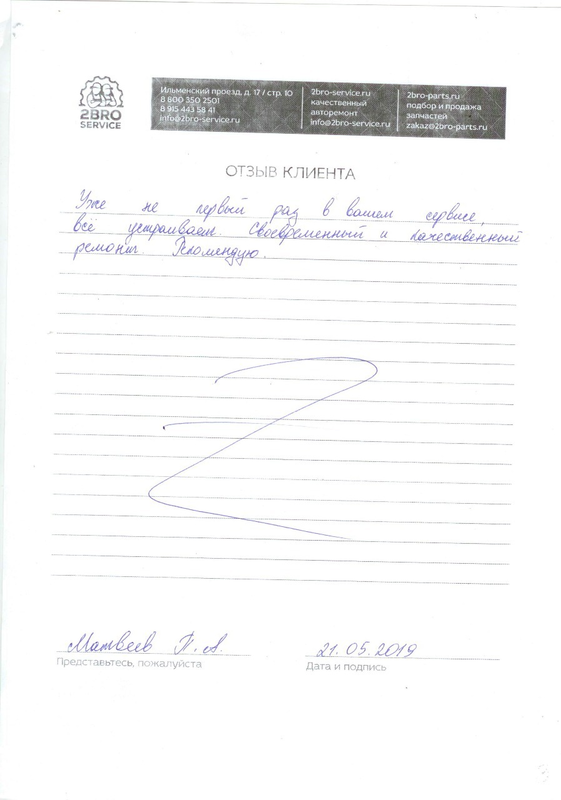 2BRO
SERVICE
Ильменский проезд, д. 17 / стр. 10
8 800 350 2501
8 915 443 58 41
info@2bro-service.ru
2bro-service.ru
качественный
авторемонт
info@2bro-service.ru
2bro-parts.ru
подбор и продажа
запчастей
zakaz@2bro-parts.ru
ОТЗЫВ КЛИЕНТА
Уже не первый раз в вашем сервисе,
всё устраивает. Своевременный и качественный
ремонт. Рекомендую.
Матвеев П. А.
Представьтесь, пожалуйста
21.05.2019
Дата и подпись
3